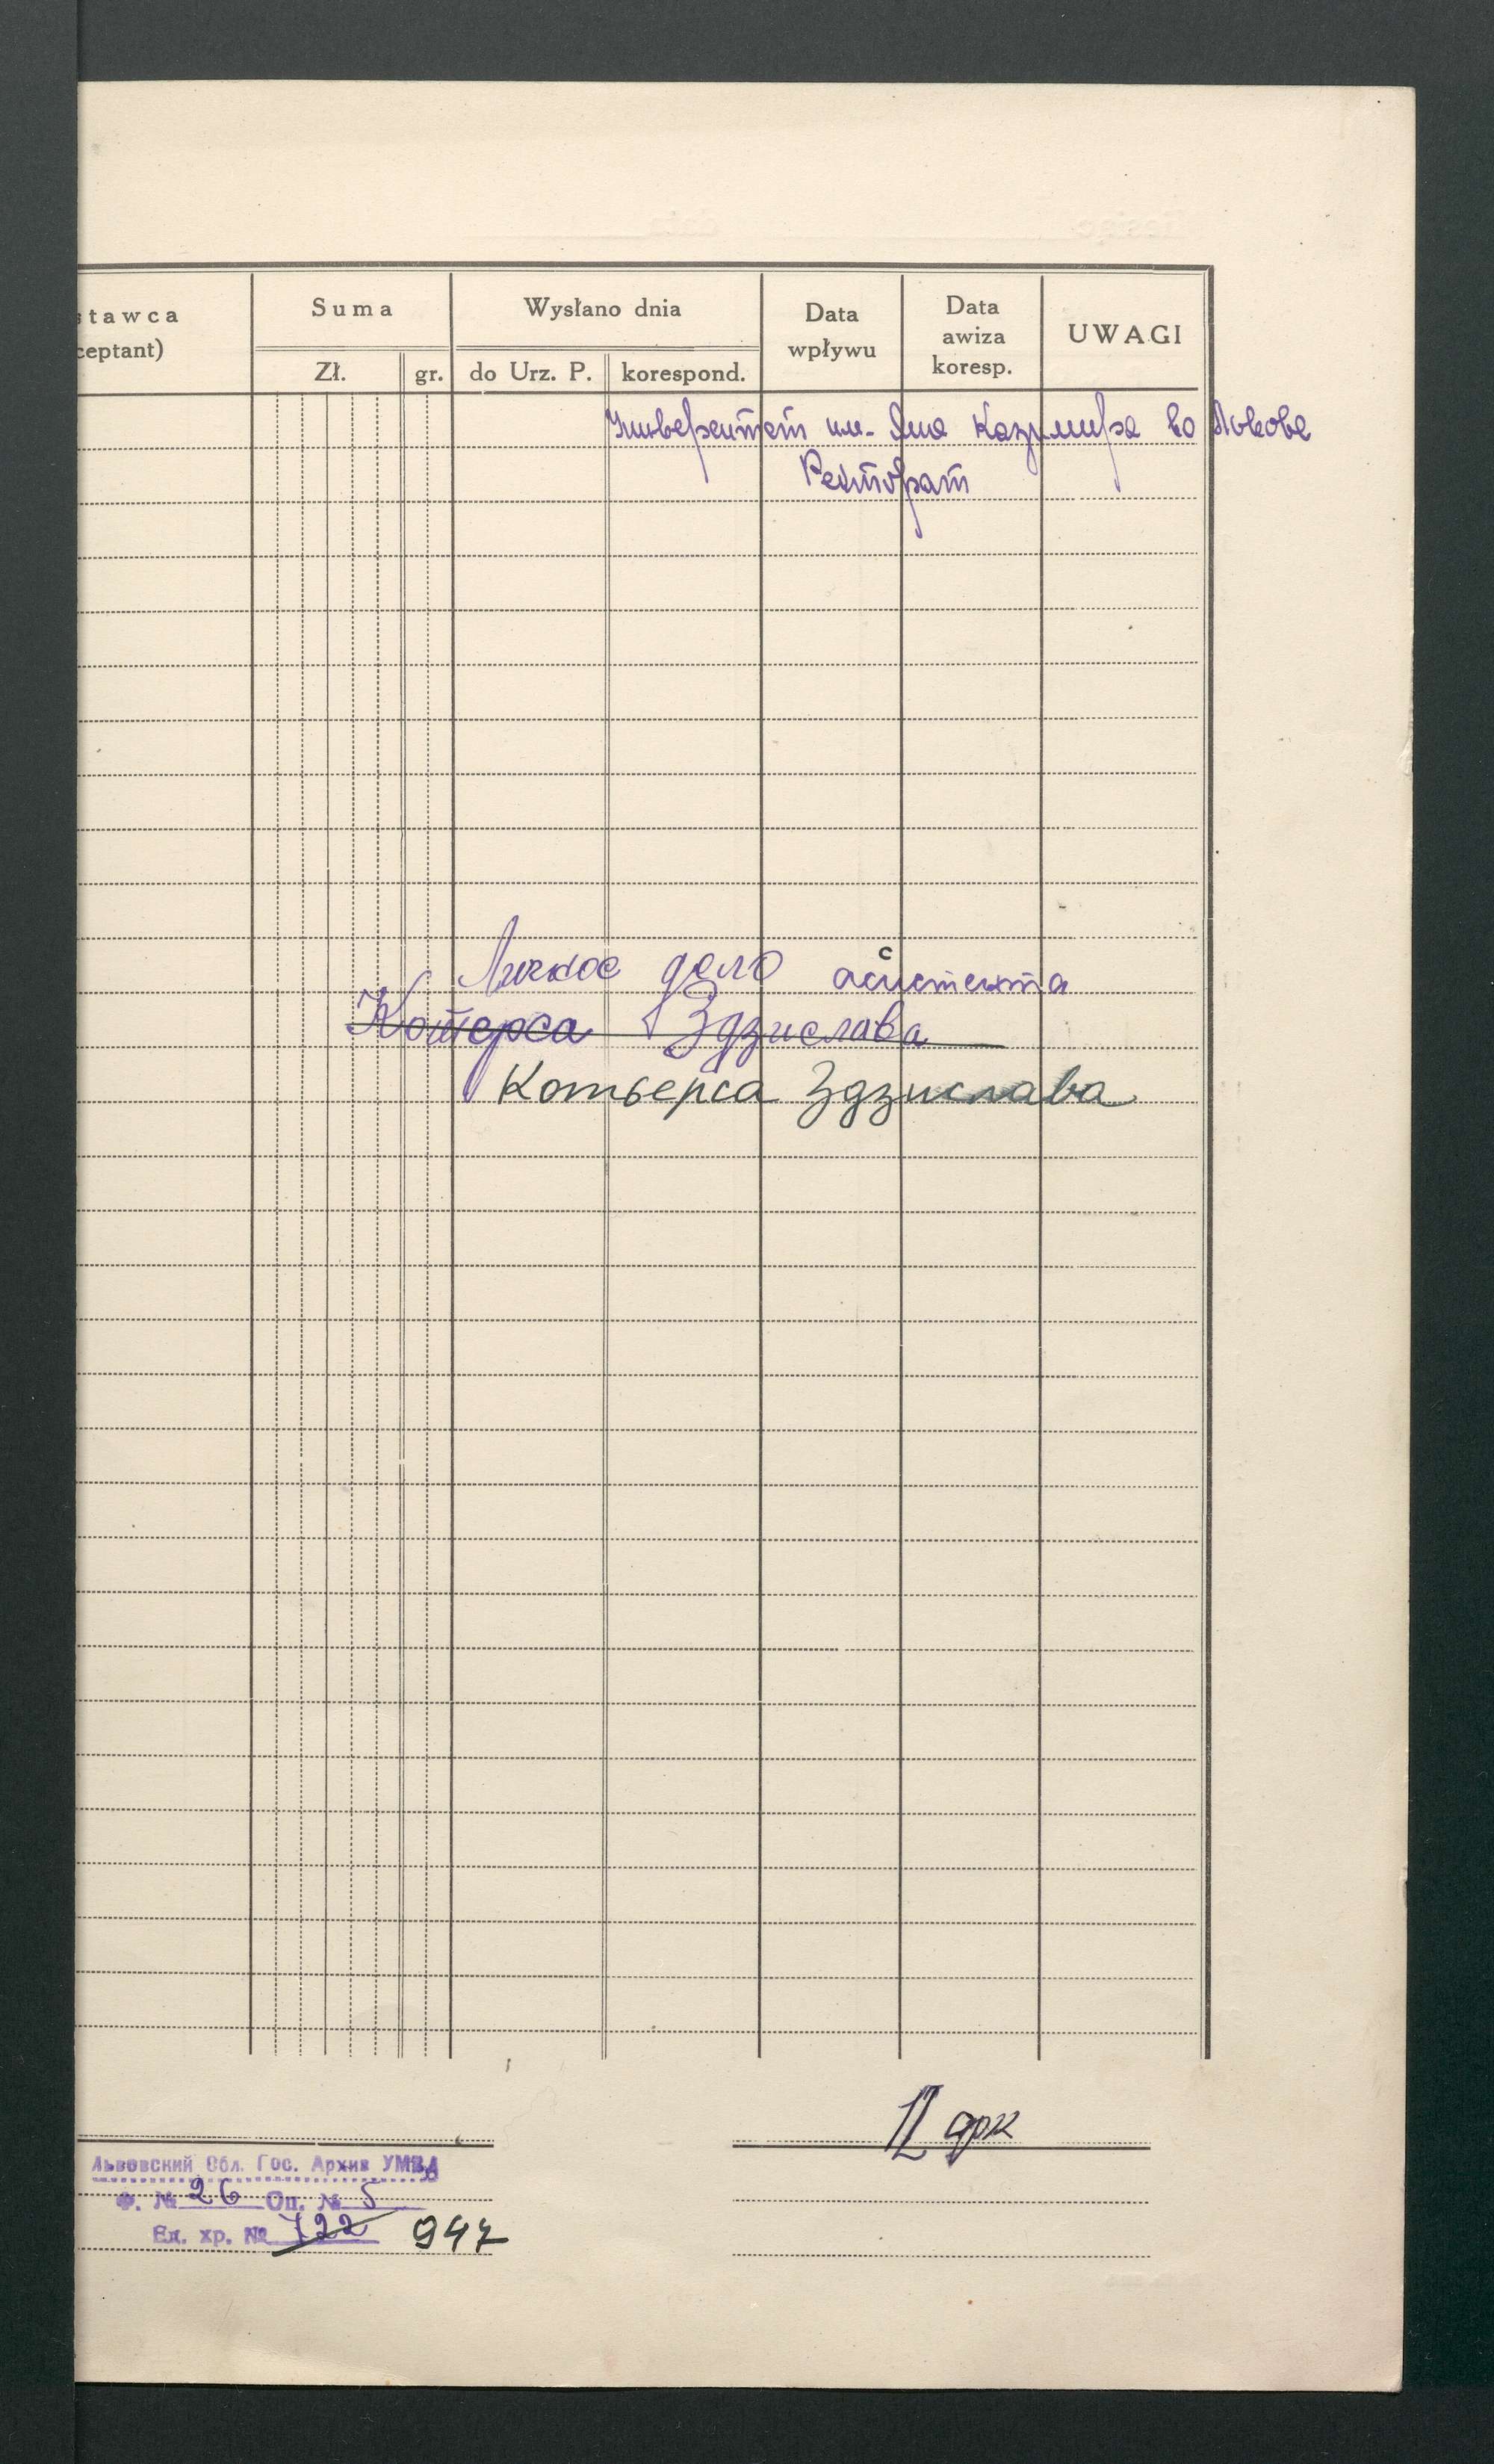 stawca
ceptant)
Suma
Zł. gr.
Wysłano dnia
do Urz. P. korespond.
Data
wpływu
Data
awiza
koresp.
UWAGI
Университет им. Яна Казимира во Львове
Ректорат
Личное дело асистента
Котерса Здзислава
Котьерса Здзислава
арк
Львовский Обл. Гос. Архив УМВД
Ф. № 26 Оп. № 5
Ед. хр. № 722 947